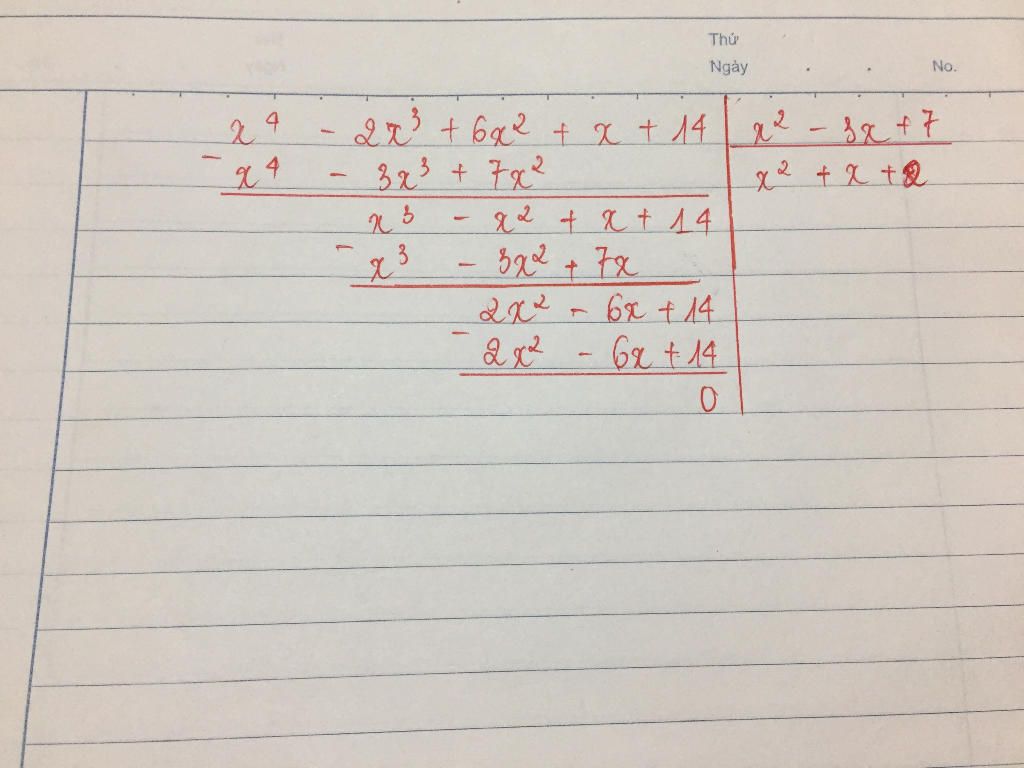 Thứ
Ngày . . No.
x⁴ - 2x³ + 6x² + x + 14 | x² - 3x + 7
- x⁴ - 3x³ + 7x² | x² + x + 2
x³ - x² + x + 14
- x³ - 3x² + 7x
2x² - 6x + 14
- 2x² - 6x + 14
0